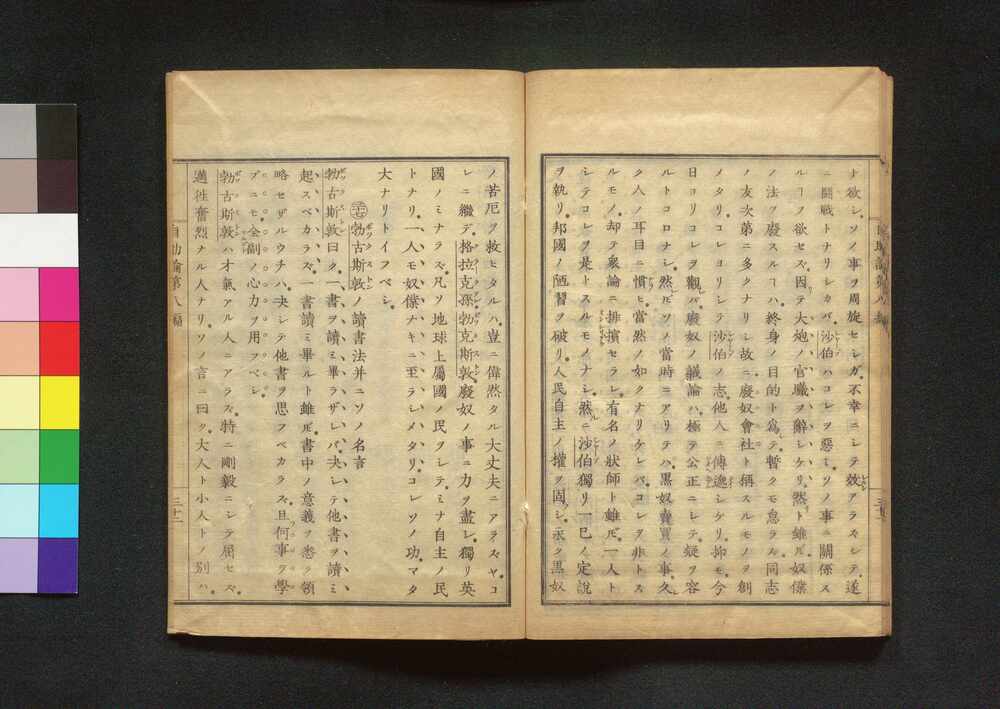 ト欲シ。ソノ事ヲ周旋セシガ。不幸ニシテ效アラズシテ。遂
ニ鬪戰トナリシカバ。沙伯ハコレヲ惡ミ。ソノ事ニ關係ス
ルヿヲ欲セズ。因テ大炮ノ官職ヲ辭シケリ。然ト雖ドモ奴僕
ノ法ヲ廢スルヿハ終身ノ目的ト爲テ。暫クモ怠ラズ。同志
ノ友次第ニ多クナリシ故ニ。廢奴會社ト稱スルモノヲ創
メタリ。コレヨリシテ沙伯ノ志。他人ニ傳遞シケリ。抑モ今
日ヨリコレヲ觀バ。廢奴ノ議論ハ。極テ公正ニシテ。疑ヲ容
ルトコロナシ。然レドモソノ當時ニアリテハ。黒奴賣買ノ事。久
ク人ノ耳目ニ慣ヒ。當然ノ如クナリケレバ。コレヲ非トス
ルモノ。却テ衆論ニ排擯セラレ。有名ノ狀師ト雖ドモ。一人ト
シテコレヲ是トスルモノナシ。然ニ沙伯獨リ一己ノ定說
ヲ執リ。邦國ノ陋習ヲ破リ。人民自主ノ權ヲ固シ。永ク黒奴
ノ苦厄ヲ救ヒタルハ。豈ニ偉然タル大丈夫ニアラズヤ。コ
レニ繼デ。格拉克孫。勃克斯敦。廢奴ノ事ニ力ヲ盡シ。獨リ英
國ノミナラズ。凡ソ地球上屬國ノ民ヲシテ。ミナ自主ノ民
トナリ。一人モ奴僕ナキニ至ラシメタリ。コレソノ功。マタ
大ナリトイフベシ
勃古斯敦ノ讀書法幷ニソノ名言
勃古斯敦曰ク。一書ヲ讀ミ畢ラザレバ。決シテ他書ヲ讀ミ
起スベカラズ。一書讀ミ畢ルト雖ドモ。書中ノ意義ヲ悉ク領
略セザルウチハ。決シテ他書ヲ思フベカラズ。且何事ヲ學
ブニモ。全副ノ心力ヲ用フベシ
勃古斯敦ハ才氣アル人ニアラズ。特ニ剛毅ニシテ屈セズ。
邁往奮烈ナル人ナリ。ソノ言ニ曰ク。大人ト小人トノ別ハ。
自助論第八編
三十二